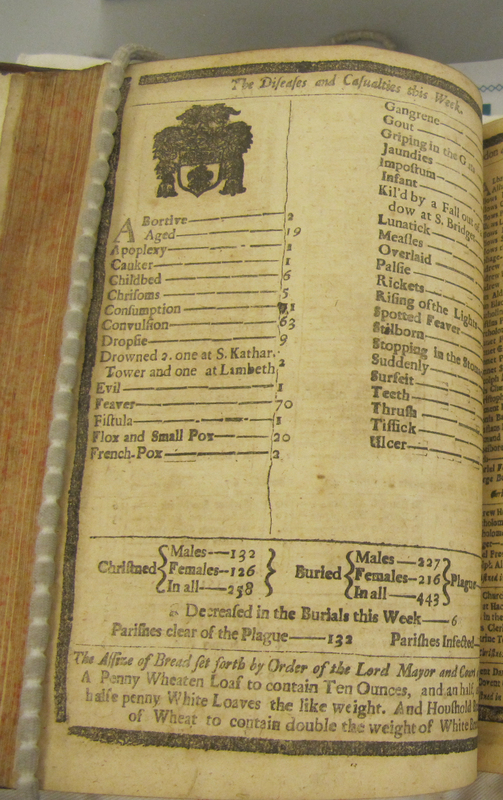 The Diseases and Casualties this Week.
ABortive—2
Aged—19
Apoplexy—1
Canker—1
Childbed—6
Chrisoms—5
Consumption—
Convulsion—63
Dropsie—9
Drowned 2. one at S. Kathar.
Tower and one at Lambeth 2
Evil—1
Feaver—70
Fistula—1
Flox and Small Pox—20
French-Pox—2
Gangrene—
Gout—
Griping in the
Jaundies—
Impostum—
Infant—
Kil'd by a Fall out
dow at S. Bridges
Lunatick—
Measles—
Overlaid—
Palsie—
Rickets—
Rising of the Lights
Spotted Feaver—
Stilborn—
Stopping in the
Suddenly—
Surfeit—
Teeth—
Thrush—
Tissick—
Ulcer—
Christned { Males—132 Females—126 In all—258 }
Buried { Males—227 Females—216 In all—443 } Plague
Decreased in the Burials this Week—6
Parishes clear of the Plague—132 Parishes Infected—
The Assize of Bread set forth by Order of the Lord Mayor and Court
A Penny Wheaten Loaf to contain Ten Ounces, and an half,
halfe penny White Loaves the like weight. And Houshold
of Wheat to contain double the weight of White